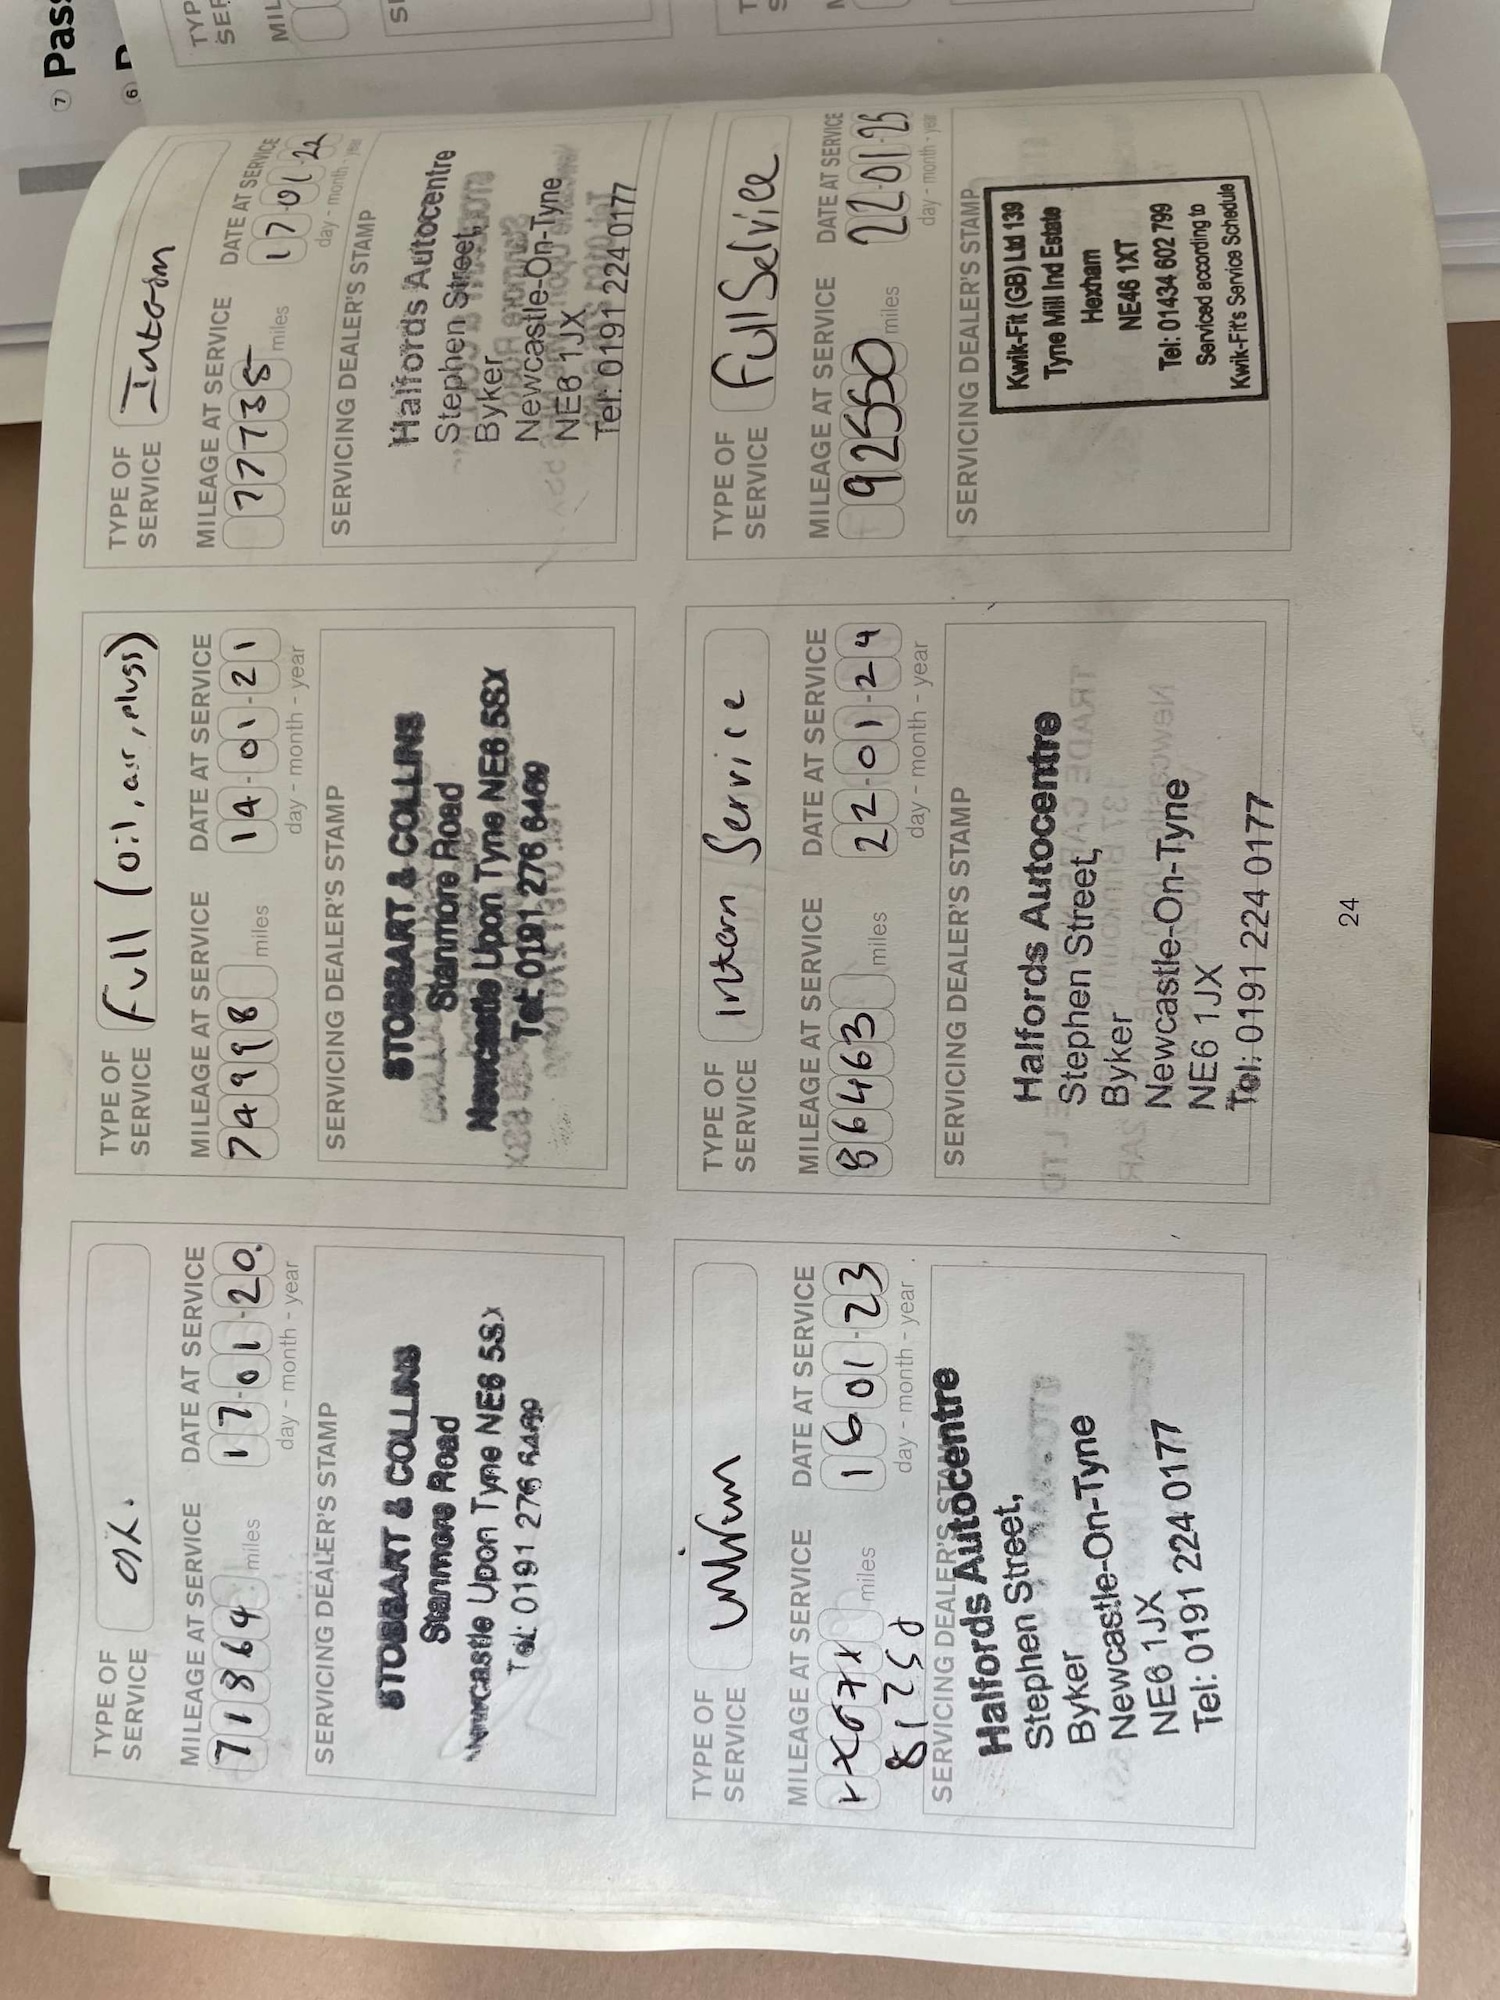 TYPE OF
SERVICE
oil.
MILEAGE AT SERVICE
DATE AT SERVICE
71864
miles
17-01-20.
day - month - year
SERVICING DEALER'S STAMP
STOBBART & COLLINS
Stanmore Road
Newcastle Upon Tyne NE6 5SX
Tel: 0191 276 6469
TYPE OF
SERVICE
Full (oil, air, plugs)
MILEAGE AT SERVICE
DATE AT SERVICE
74998
miles
14-01-21
day - month - year
SERVICING DEALER'S STAMP
STOBBART & COLLINS
Stanmore Road
Newcastle Upon Tyne NE6 5SX
Tel: 0191 276 6469
TYPE OF
SERVICE
Interm
MILEAGE AT SERVICE
DATE AT SERVICE
77735
miles
17-01-22
day - month - year
SERVICING DEALER'S STAMP
Halfords Autocentre
Stephen Street,
Byker
Newcastle-On-Tyne
NE6 1JX
Tel: 0191 224 0177
TYPE OF
SERVICE
MILEAGE AT SERVICE
DATE AT SERVICE
miles
16-01-23
day - month - year
SERVICING DEALER'S STAMP
Halfords Autocentre
Stephen Street,
Byker
Newcastle-On-Tyne
NE6 1JX
Tel: 0191 224 0177
TYPE OF
SERVICE
Interm Service
MILEAGE AT SERVICE
DATE AT SERVICE
86463
miles
22-01-24
day - month - year
SERVICING DEALER'S STAMP
Halfords Autocentre
Stephen Street,
Byker
Newcastle-On-Tyne
NE6 1JX
Tel: 0191 224 0177
TYPE OF
SERVICE
Full Service
MILEAGE AT SERVICE
DATE AT SERVICE
92550
miles
22-01-25
day - month - year
SERVICING DEALER'S STAMP
Kwik-Fit (GB) Ltd 139
Tyne Mill Ind Estate
Hexham
NE46 1XT
Tel: 01434 602 799
Serviced according to
Kwik-Fit's Service Schedule
24
7 Pas
6